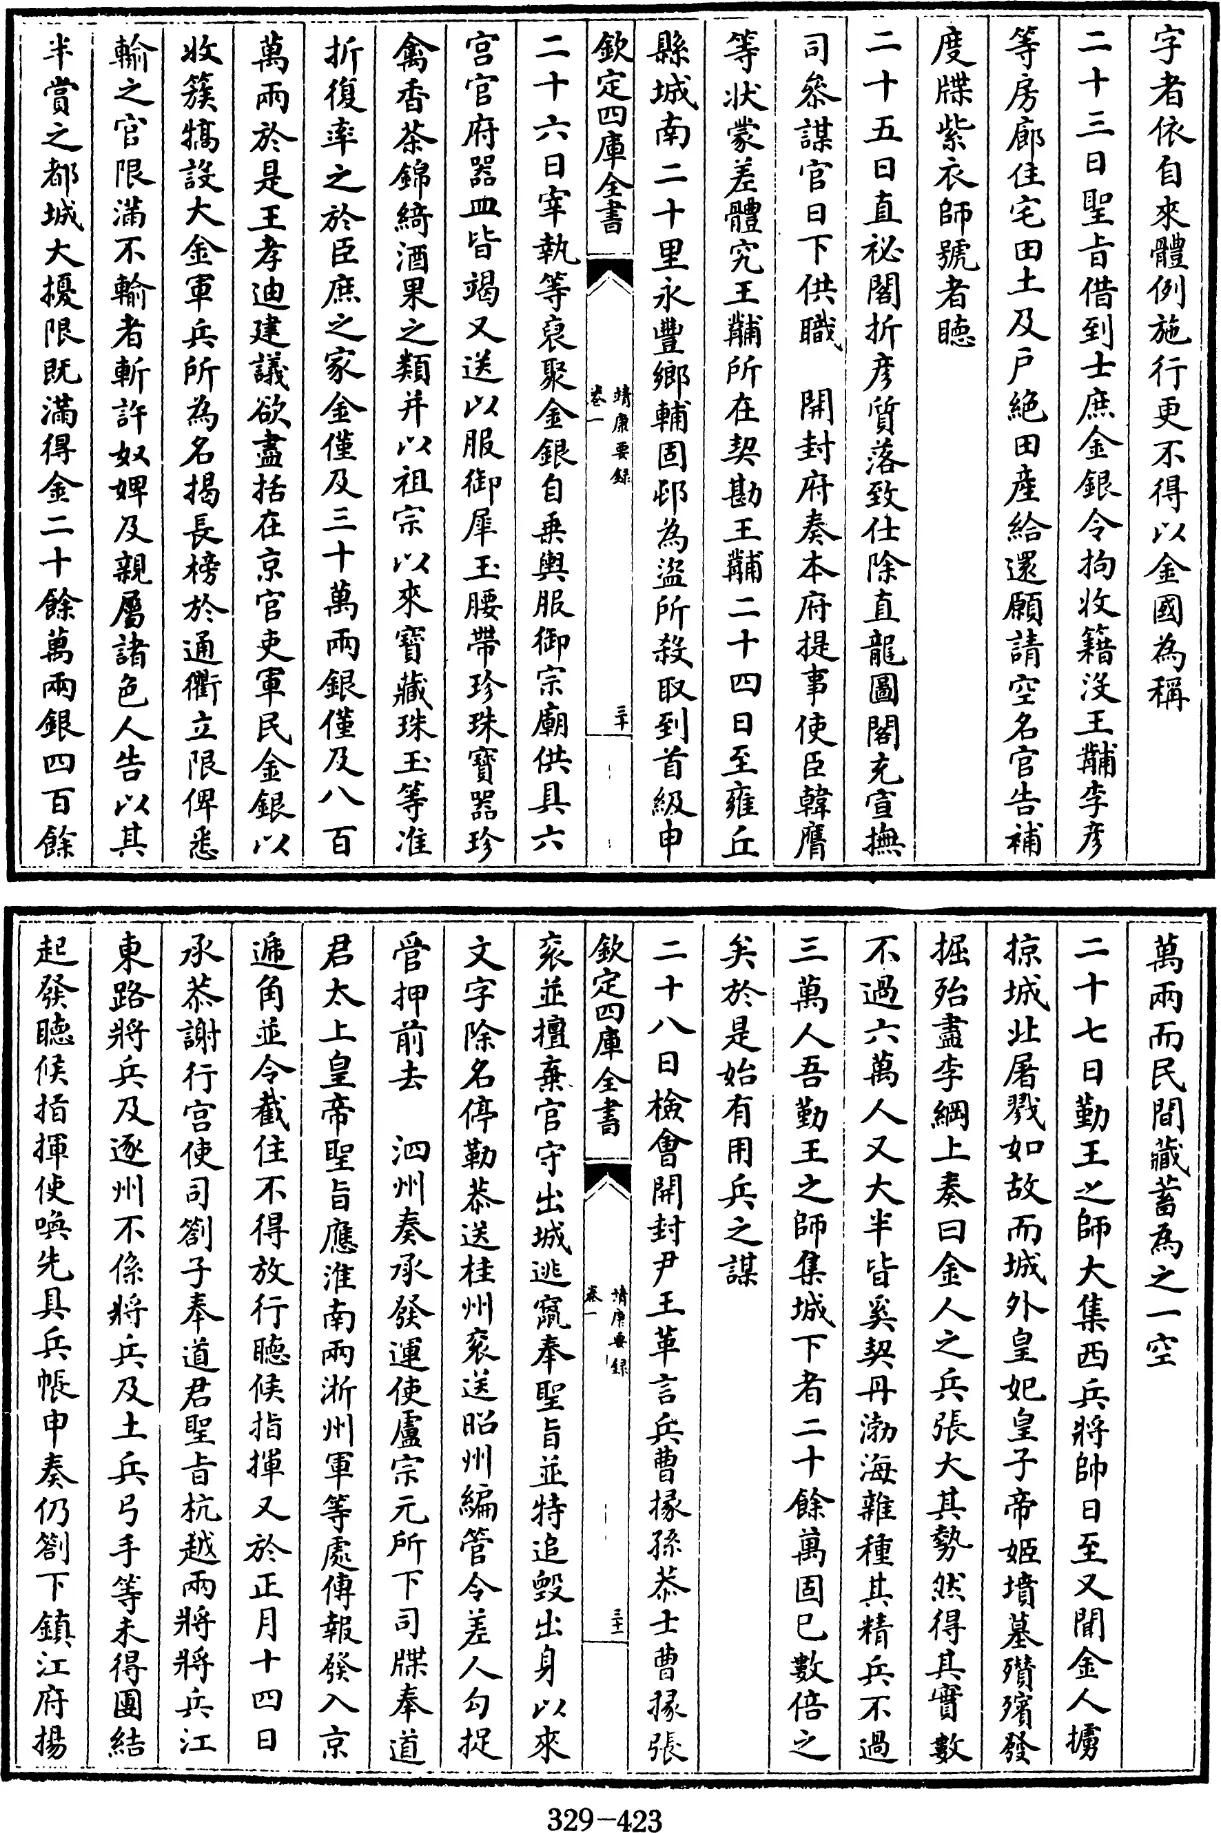 字者依自來體例施行更不得以金國為稱
二十三日聖㫖借到士庶金銀令拘收籍没王黼李彦
等房廊住宅田土及戸絶田産給還願請空名官告補
度牒紫衣師號者聽
二十五日直祕閣折彦質落致仕除直龍圖閣充宣撫
司參謀官日下供職　開封府奏本府提事使臣韓膺
等狀蒙差體究王黼所在契勘王黼二十四日至雍丘
縣城南二十里永豐鄉輔固邨為盜所殺取到首級申
欽定四庫全書
靖康要録
卷一
三十
二十六日宰執等裒聚金銀自乗輿服御宗廟供具六
宫官府器皿皆竭又送以服御犀玉腰帶珍珠寶器珍
禽香茶錦綺酒果之類并以祖宗以來寶藏珠玉等准
折復率之於臣庶之家金僅及三十萬兩銀僅及八百
萬兩於是王孝迪建議欲盡括在京官吏軍民金銀以
收簇犒設大金軍兵所為名揭長榜於通衢立限俾悉
輸之官限滿不輸者斬許奴婢及親屬諸色人告以其
半賞之都城大擾限既滿得金二十餘萬兩銀四百餘
萬兩而民間藏蓄為之一空
二十七日勤王之師大集西兵將帥日至又聞金人擄
掠城北屠戮如故而城外皇妃皇子帝姬墳墓殯殯發
掘殆盡李綱上奏曰金人之兵張大其勢然得其實數
不過六萬人又大半皆奚契丹渤海雜種其精兵不過
三萬人吾勤王之師集城下者二十餘萬固已數倍之
矣於是始有用兵之謀
二十八日檢會開封尹王革言兵曹掾孫恭士曹掾張
欽定四庫全書
靖康要録
卷一
三十一
衮並擅棄官守出城逃竄奉聖㫖並特追毁出身以來
文字除名停勒恭送桂州衮送昭州編管令差人勾捉
管押前去　泗州奏承發運使盧宗元所下司牒奉道
君太上皇帝聖㫖應淮南兩浙州軍等處傳報發入京
遞角並令截住不得放行聽候指揮又於正月十四日
承恭謝行宫使司劄子奉道君聖㫖杭越兩將將兵江
東路將兵及逐州不係將兵及土兵弓手等未得團結
起發聽候指揮使喚先具兵帳申奏仍劄下鎮江府揚
329-423